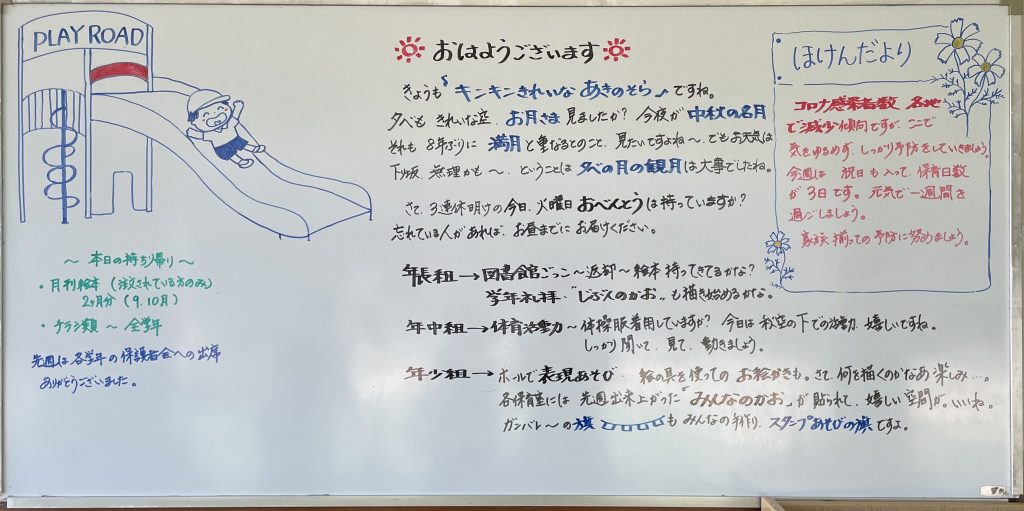 PLAY ROAD
おはようございます
きょうも "キンキンきれいな あきのそら〟ですね。
夕べも きれいな空、お月さま 見ましたか? 今夜が 中秋の名月
それも 8年ぶりに 満月 と重なるとのこと、見たいですよね〜。でもお天気は
下り坂、無理かも〜。ということは 夕べの月の観月は大事でしたね。
さて、3連休明けの今日、火曜日 おべんとうは持っていますか?
忘れている人があれば、お昼までに お届けください。
年長組→図書館ごっこ〜返却〜絵本 持ってきてるかな?
学年礼拝・"じぶんのかお"も描き始めるかな。
年中組→体育活動〜体操服着用していますか? 今日は 秋空の下での活動、嬉しいですね。
しっかり聞いて、見て、動きましょう。
年少組→ホールで表現あそび 絵の具を使っての お絵かきも。さて、何を描くのかなあ 楽しみ…。
各保育室には 先週出来上がった「みんなのかお」が貼られて、嬉しい空間が。いいね。
ガンバレ〜の旗も みんなの手作り、スタンプあそびの旗ですよ。
〜 本日の持ち帰り 〜
・月刊絵本 (注文されている方のみ)
2ヶ月分 (9.10月)
・チラシ類 〜 全学年
先週は 各学年の保護者会への出席
ありがとうございました。
ほけんだより
コロナ感染者数 各地
で減少傾向ですが、ここで
気をゆるめず、しっかり予防をしていきましょう。
今週は 祝日も入って、保育日数
が3日です。元気で一週間を
過ごしましょう。
家族揃っての予防に努めましょう。